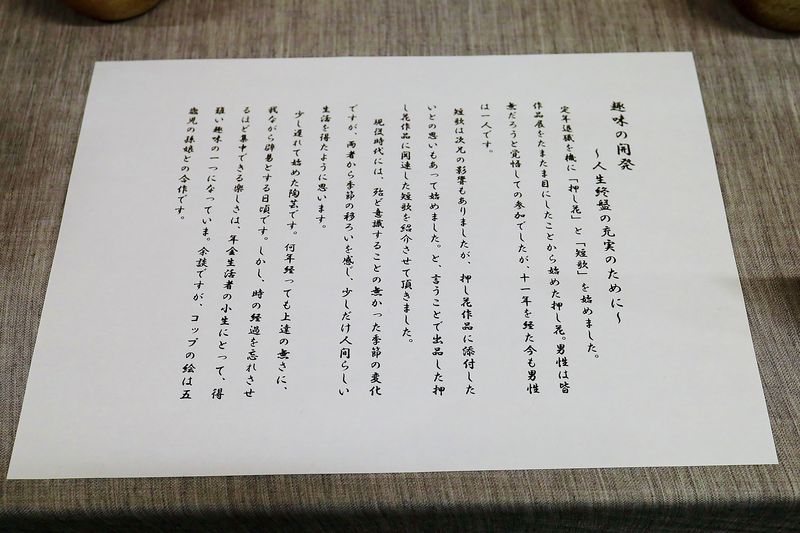 趣味の開発
～人生終盤の充実のために～
定年退職を機に「押し花」と「短歌」を始めました。
作品展をたまたま目にしたことから始めた押し花。男性は皆
無だろうと覚悟しての参加でしたが、十一年を経た今も男性
は一人です。
短歌は次兄の影響もありましたが、押し花作品に添付した
いとの思いもあって始めました。と、言うことで出品した押
し花作品に関連した短歌を紹介させて頂きました。
現役時代には、殆ど意識することの無かった季節の変化
ですが、両者から季節の移ろいを感じ、少しだけ人間らしい
生活を得たように思います。
少し遅れて始めた陶芸です。何年経っても上達の無さに、
我ながら辟易とする日頃です。しかし、時の経過を忘れさせ
るほど集中できる楽しさは、年金生活者の小生にとって、得
難い趣味の一つになっていま。余談ですが、コップの絵は五
歳児の孫娘との合作です。